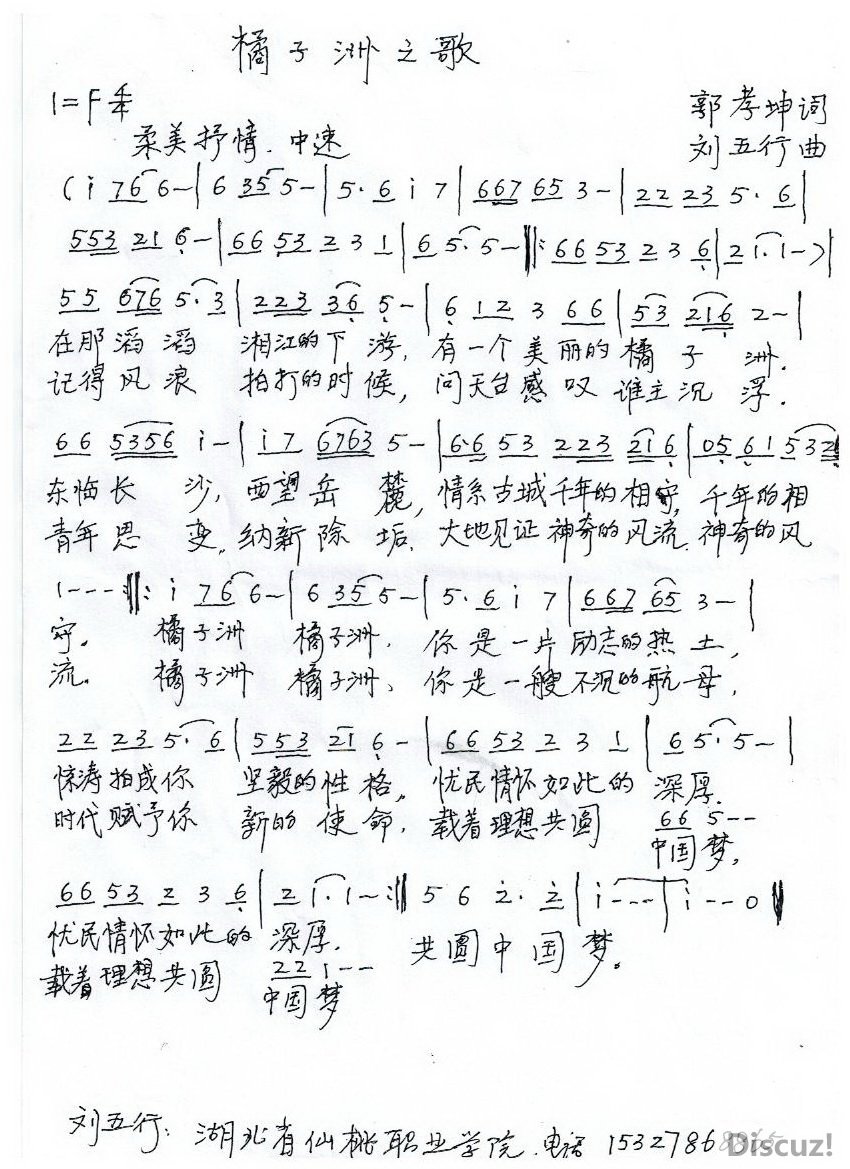 橘子洲之歌
1=F 4/4
郭孝坤词
柔美抒情.中速
刘五行曲
(i 7 6 6 - | 6 3 5 5 - | 5· 6 i 7 | 6 6 7 6 5 3 - | 2 2 2 3 5· 6 |
5 5 3 2 1 6 - | 6 6 5 3 2 3 1 | 6 5· 5 - ‖: 6 6 5 3 2 3 6 | 2 1· 1 - ) |
5 5 6 7 6 5· 3 | 2 2 3 3 6 5 - | 6 1 2 3 6 6 | 5 3 2 1 6 2 - |
在那滔滔 湘江的下游, 有一个美丽的橘子洲.
记得风浪 拍打的时候, 问天台感叹谁主沉浮.
6 6 5 3 5 6 i - | i 7 6 7 6 3 5 - | 6· 6 5 3 2 2 3 2 1 6 | 0 5 6 1 5 3 2
东临长沙, 西望岳麓, 情系古城千年的相守, 千年的相
青年思变, 纳新除垢. 大地见证神奇的风流. 神奇的风
1 - - - :‖: i 7 6 6 - | 6 3 5 5 - | 5· 6 i 7 | 6 6 7 6 5 3 - |
守. 橘子洲 橘子洲. 你是一片励志的热土,
流. 橘子洲 橘子洲、 你是一艘不沉的航母,
2 2 2 3 5· 6 | 5 5 3 2 1 6 - | 6 6 5 3 2 3 1 | 6 5· 5 - |
惊涛拍成你 坚毅的性格, 忧民情怀如此的 深厚.
时代赋予你 新的使命, 载着理想共圆 6 6 5 - -
中国梦,
6 6 5 3 2 3 6 | 2 1· 1 - :‖ 5 6 2· 2 | i - - - | i - - 0 ‖
忧民情怀如此的 深厚. 共圆中国梦。
载着理想共圆 2 2 1 - -
中国梦
刘五行: 湖北省仙桃职业学院. 电话 1532786
Discuz!